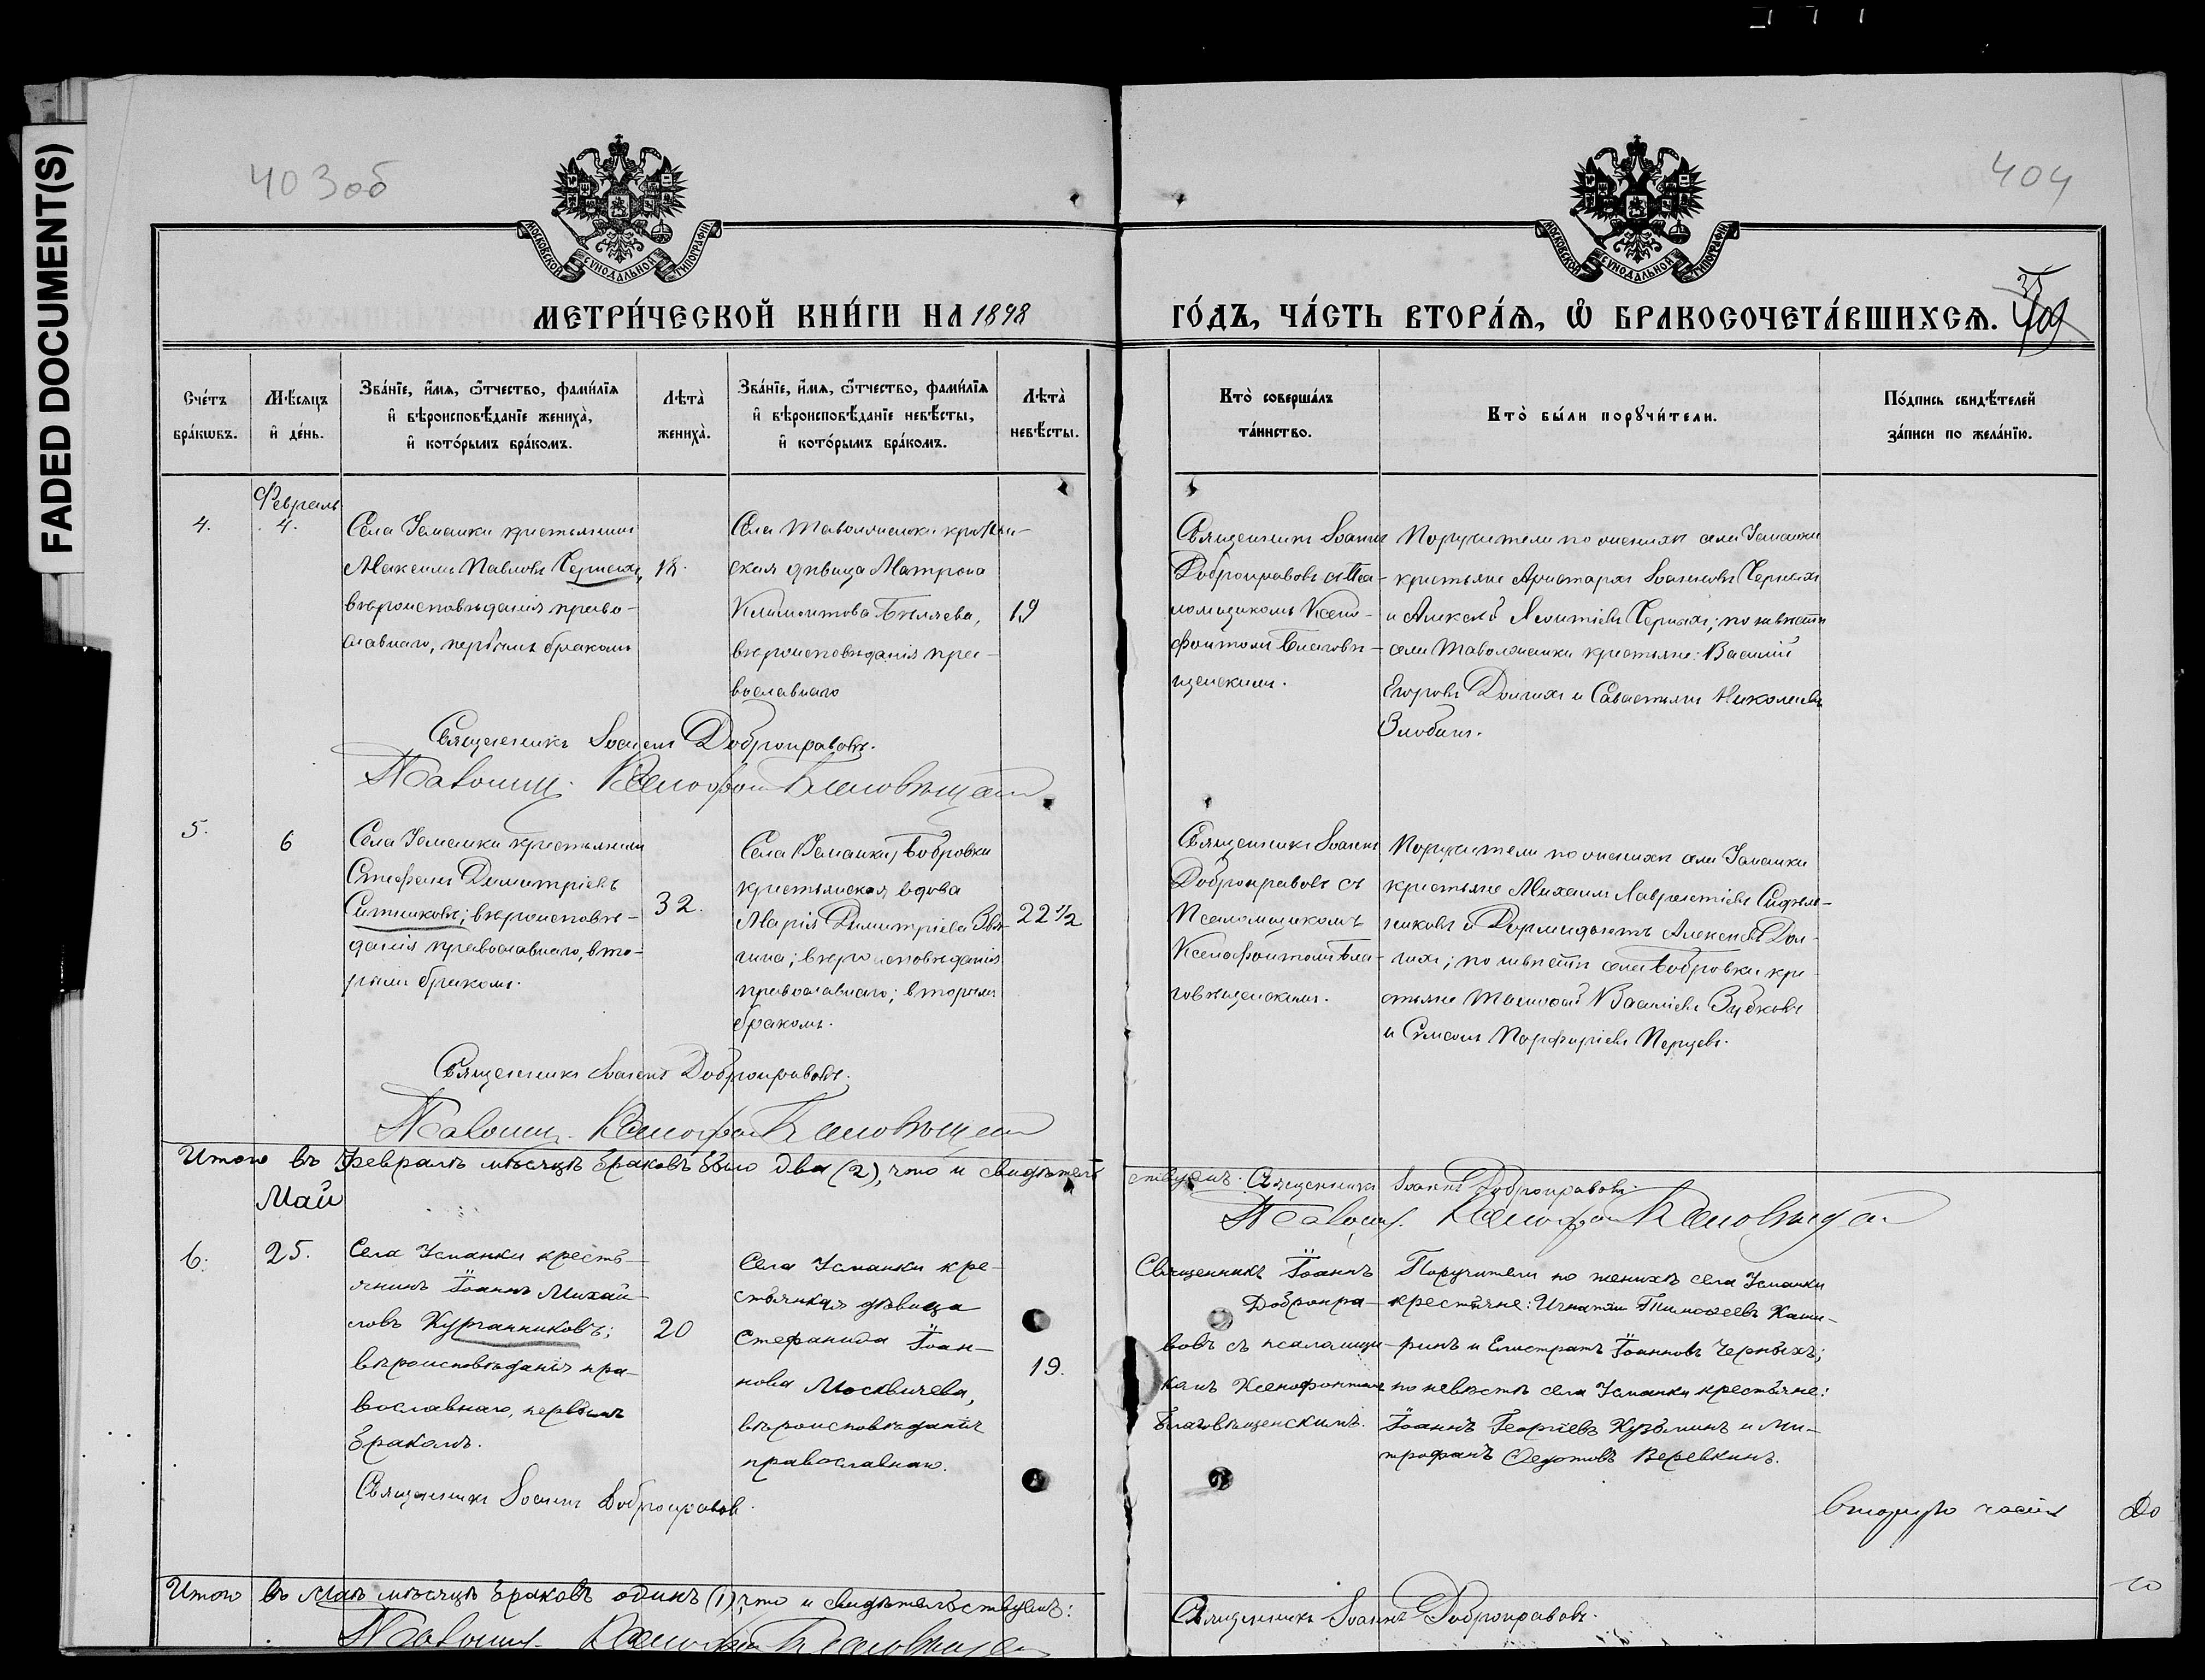 FADED DOCUMENT(S)
403 об
404
МОСКОВСКОЙ СѴНОДАЛЬНОЙ ТИПОГРАФІИ
МОСКОВСКОЙ СѴНОДАЛЬНОЙ ТИПОГРАФІИ
МЕТРИ́ЧЕСКОЙ КНИ́ГИ НА 1898
ГО́ДЪ, ЧА́СТЬ ВТОРА́Ѧ, Ѽ БРАКОСОЧЕТА́ВШИХСѦ.
Сче́тъ бра́кѡвъ.
Мѣ́сяцъ и҆ де́нь.
Зва́нїе, и҆́мя, ѻ҆́тчество, фами́лїя и҆ вѣроисповѣ́данїе жениха̀, и҆ кото́рымъ бра́комъ.
Лѣта̀ жениха̀.
Зва́нїе, и҆́мя, ѻ҆́тчество, фами́лїя и҆ вѣроисповѣ́данїе невѣ́сты, и҆ кото́рымъ бра́комъ.
Лѣта̀ невѣ́сты.
Кто̀ соверша́лъ та́инство.
Кто̀ бы́ли порꙋчи́тели.
По́дпись свидѣ́телей за́писи по жела́нїю.
Февраль
4.
4.
Села Усманки крестьянинъ
Максимъ Павловъ Черныхъ,
вѣроисповѣданія право-
славнаго, первымъ бракомъ
18.
Села Таволжанки кресть-
ская дѣвица Матрона
Климентова Бѣляева,
вѣроисповѣданія пра-
вославнаго
19
Священникъ Іоаннъ
Добронравовъ съ Пса-
ломщикомъ Ксено-
фонтомъ Благовѣ-
щенскимъ.
Поручители по женихѣ села Усманки
крестьяне Аристархъ Іоанновъ Черныхъ
и Алексѣй Леонтіевъ Черныхъ; по невѣстѣ
села Таволжанки крестьяне: Василій
Егоровъ Долгихъ и Савастьянъ Николаевъ
Злобинъ.
Священникъ Іоаннъ Добронравовъ.
Псаломщ. Ксенофон Благовѣщен
5.
6
Села Усманки крестьянинъ
Стефанъ Димитріевъ
Ситниковъ; вѣроисповѣ-
данія православнаго, вто-
рымъ бракомъ.
32.
Села (Усманки) Бобровки
крестьянская вдова
Марія Димитріева
вѣроисповѣданія
православнаго; вторымъ
бракомъ.
22 1/2
Священникъ Іоаннъ
Добронравовъ съ
Псаломщикомъ
Ксенофонтомъ Бла-
говѣщенскимъ.
Поручители по женихѣ села Усманки
крестьяне Михаилъ Лаврентіевъ Сидѣль-
никовъ и Дормидонтъ Алексѣевъ Дол-
гихъ; по невѣстѣ села Бобровки кре-
стьяне Тимофей Васильевъ Зубковъ
и Симеонъ Порфиріевъ Перцевъ.
Священникъ Іоаннъ Добронравовъ.
Псаломщ. Ксенофон Благовѣщен
Итого въ Февралѣ мѣсяцѣ браковъ было два (2), что и свидѣтель
ствуемъ: Священникъ Іоаннъ Добронравовъ.
Псаломщ. Ксенофон Благовѣщен
Май
6.
25.
Села Усманки кресть-
янинъ Іоаннъ Михай-
ловъ Курганниковъ;
вѣроисповѣданія пра-
вославнаго, первымъ
бракомъ.
20
Села Усманки кре-
стьянская дѣвица
Стефанида Іоан-
нова Москвичева,
вѣроисповѣданія
православнаго.
19.
Священникъ Іоаннъ
Добронра-
вовъ съ псаломщи-
комъ Ксенофонтомъ
Благовѣщенскимъ.
Поручители по женихѣ села Усманки
крестьяне: Игнатій Тимоѳеевъ Каши-
ринъ и Елистратъ Іоанновъ Черныхъ;
по невѣстѣ села Усманки крестьяне:
Іоаннъ Георгіевъ Кузьминъ и Ми-
трофанъ Ѳедотовъ Веревкинъ.
Священникъ Іоаннъ Добронравов.
Итого въ Маѣ мѣсяцѣ браковъ одинъ (1), что и свидѣтельствуемъ:
Священникъ Іоаннъ Добронравовъ.
Псаломщ. Ксенофон Благовѣщен